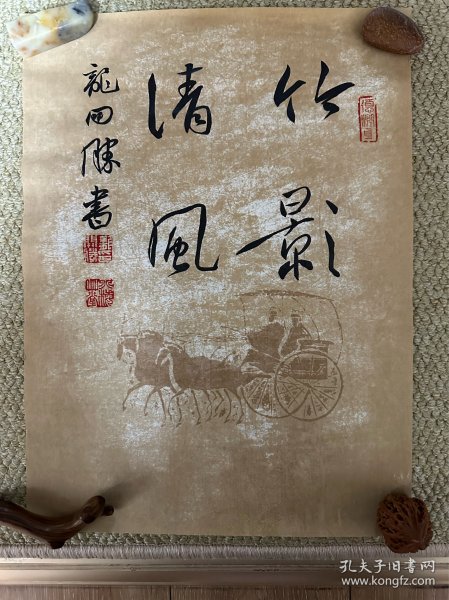 竹影
清風
龍田勝書
孔夫子旧书网
www.kongfz.com